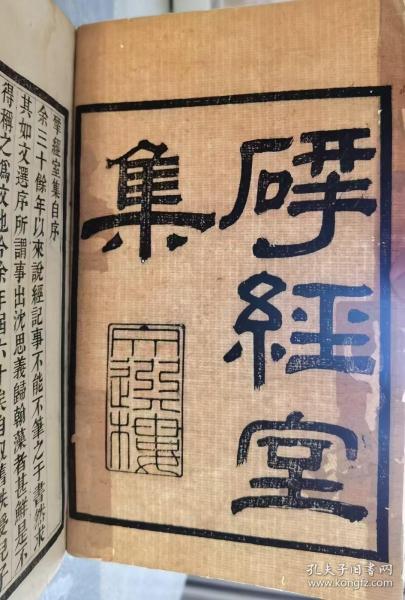 揅經室
集
文選樓
揅經室集自序
余三十餘年以來說經記事不能不筆之于書然求
其如文選序所謂事出沈思義歸翰藻者甚鮮是不
得稱之爲文也今余年屆六十矣自取舊帙授兒子
孔夫子旧书网
www.kongfz.com